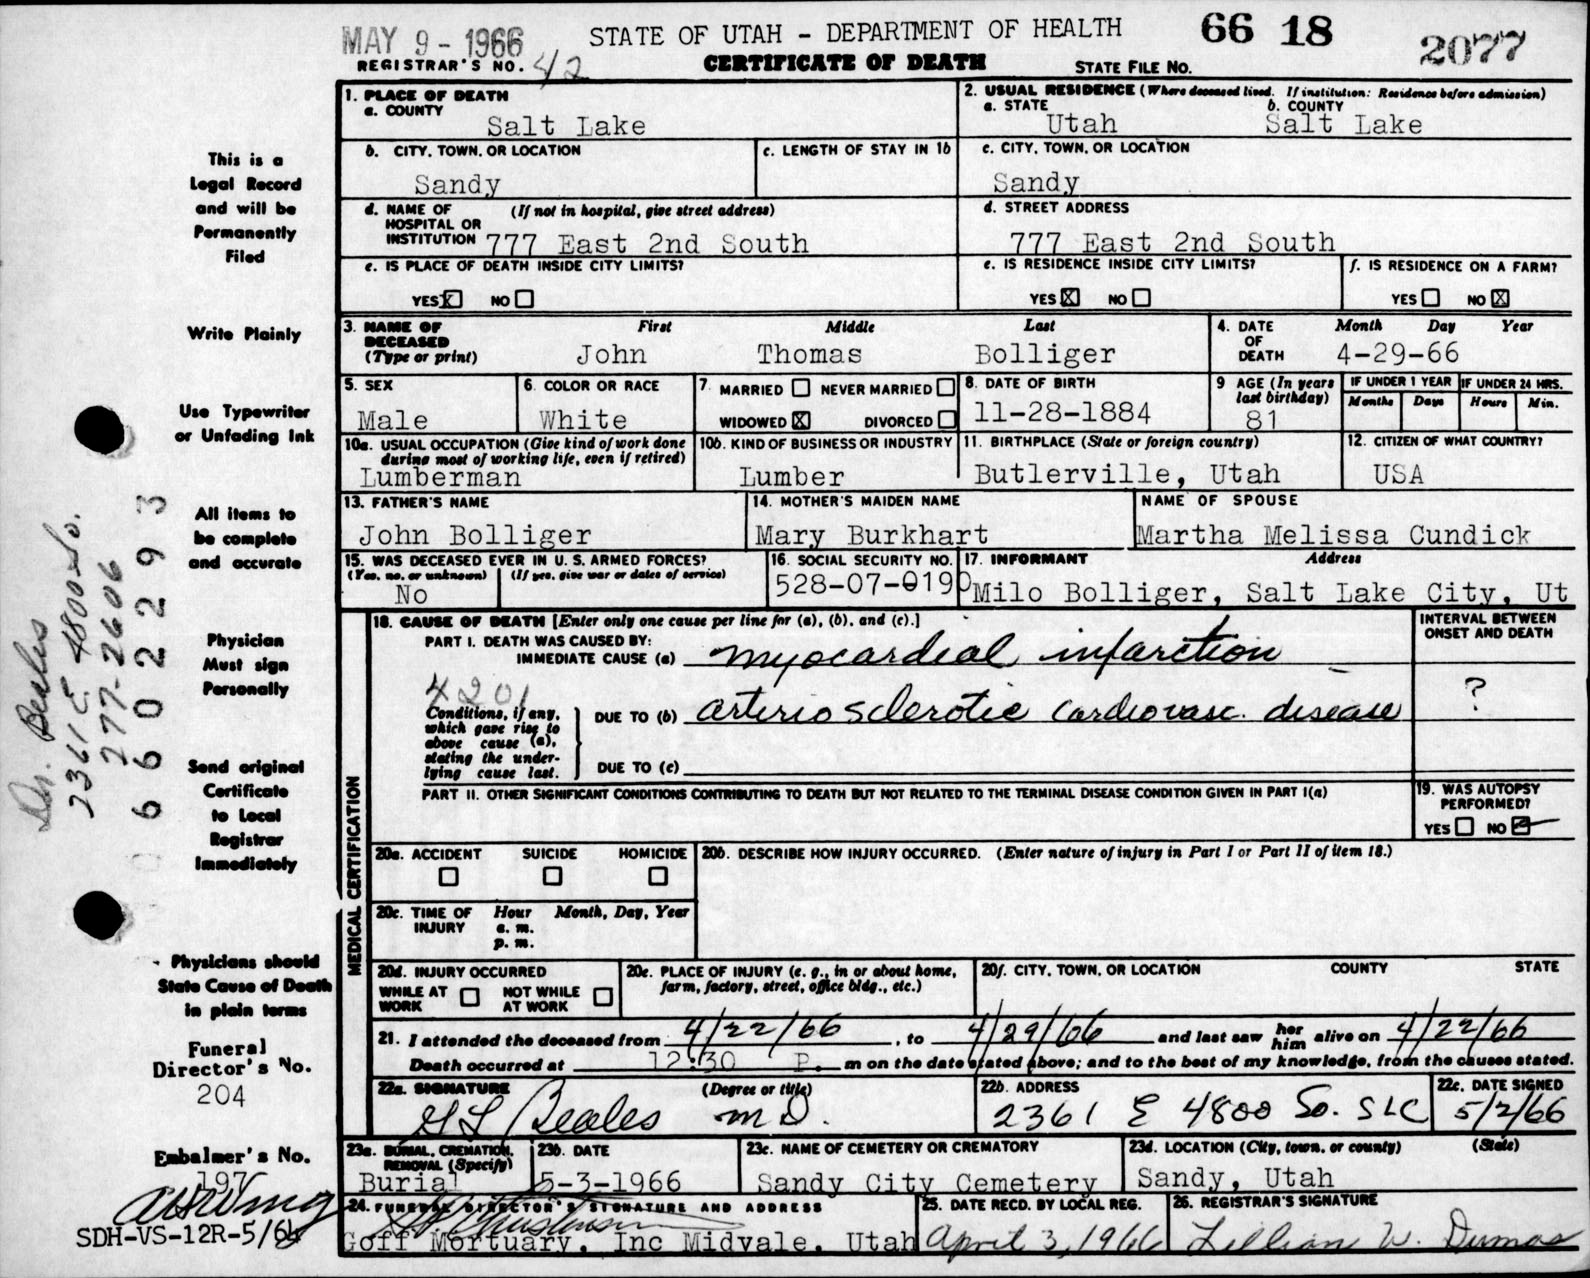 MAY 9 - 1966
STATE OF UTAH - DEPARTMENT OF HEALTH
66 18
2077
REGISTRAR'S NO. 42
CERTIFICATE OF DEATH
STATE FILE NO.
1. PLACE OF DEATH
a. COUNTY
Salt Lake
2. USUAL RESIDENCE (Where deceased lived. If institution: Residence before admission)
a. STATE b. COUNTY
Utah Salt Lake
b. CITY, TOWN, OR LOCATION
Sandy
c. LENGTH OF STAY IN 1b
c. CITY, TOWN, OR LOCATION
Sandy
d. NAME OF HOSPITAL OR INSTITUTION (If not in hospital, give street address)
777 East 2nd South
d. STREET ADDRESS
777 East 2nd South
e. IS PLACE OF DEATH INSIDE CITY LIMITS?
YES X NO
e. IS RESIDENCE INSIDE CITY LIMITS?
YES X NO
f. IS RESIDENCE ON A FARM?
YES NO X
3. NAME OF DECEASED (Type or print)
First Middle Last
John Thomas Bolliger
4. DATE OF DEATH
Month Day Year
4-29-66
5. SEX
Male
6. COLOR OR RACE
White
7. MARRIED NEVER MARRIED
WIDOWED X DIVORCED
8. DATE OF BIRTH
11-28-1884
9 AGE (In years last birthday)
81
IF UNDER 1 YEAR
Months Days
IF UNDER 24 HRS.
Hours Min.
10a. USUAL OCCUPATION (Give kind of work done during most of working life, even if retired)
Lumberman
10b. KIND OF BUSINESS OR INDUSTRY
Lumber
11. BIRTHPLACE (State or foreign country)
Butlerville, Utah
12. CITIZEN OF WHAT COUNTRY?
USA
13. FATHER'S NAME
John Bolliger
14. MOTHER'S MAIDEN NAME
Mary Burkhart
NAME OF SPOUSE
Martha Melissa Cundick
15. WAS DECEASED EVER IN U. S. ARMED FORCES?
(Yes, no, or unknown) (If yes, give war or dates of service)
No
16. SOCIAL SECURITY NO.
528-07-0190
17. INFORMANT Address
Milo Bolliger, Salt Lake City, Ut
18. CAUSE OF DEATH [Enter only one cause per line for (a), (b), and (c).]
PART I. DEATH WAS CAUSED BY:
IMMEDIATE CAUSE (a) myocardial infarction
4201
Conditions, if any, which gave rise to above cause (a), stating the underlying cause last.
DUE TO (b) arteriosclerotic cardiovasc. disease
DUE TO (c)
INTERVAL BETWEEN ONSET AND DEATH
?
PART II. OTHER SIGNIFICANT CONDITIONS CONTRIBUTING TO DEATH BUT NOT RELATED TO THE TERMINAL DISEASE CONDITION GIVEN IN PART I(a)
19. WAS AUTOPSY PERFORMED?
YES NO
MEDICAL CERTIFICATION
20a. ACCIDENT SUICIDE HOMICIDE
20b. DESCRIBE HOW INJURY OCCURRED. (Enter nature of injury in Part I or Part II of item 18.)
20c. TIME OF INJURY Hour Month, Day, Year
a. m.
p. m.
20d. INJURY OCCURRED
WHILE AT WORK NOT WHILE AT WORK
20e. PLACE OF INJURY (e. g., in or about home, farm, factory, street, office bldg., etc.)
20f. CITY, TOWN, OR LOCATION COUNTY STATE
21. I attended the deceased from 4/22/66, to 4/29/66 and last saw her him alive on 4/22/66
Death occurred at 12:30 P. m on the date stated above; and to the best of my knowledge, from the causes stated.
22a. SIGNATURE (Degree or title)
G L Beales M D.
22b. ADDRESS
2361 E 4800 So. SLC
22c. DATE SIGNED
5/2/66
23a. BURIAL, CREMATION, REMOVAL (Specify)
Burial
23b. DATE
5-3-1966
23c. NAME OF CEMETERY OR CREMATORY
Sandy City Cemetery
23d. LOCATION (City, town, or county) (State)
Sandy, Utah
24. FUNERAL DIRECTOR'S SIGNATURE AND ADDRESS
Goff Mortuary, Inc Midvale, Utah
25. DATE RECD. BY LOCAL REG.
April 3, 1966
26. REGISTRAR'S SIGNATURE
Lillian W. Dumas
This is a
Legal Record
and will be
Permanently
Filed
Write Plainly
Use Typewriter
or Unfading Ink
All items to
be complete
and accurate
Physician
Must sign
Personally
Send original
Certificate
to Local
Registrar
Immediately
Physicians should
State Cause of Death
in plain terms
Funeral
Director's No.
204
Embalmer's No.
197
SDH-VS-12R-5/64
Dr. Beales
2361 E 4800 So.
277-2606
66022293